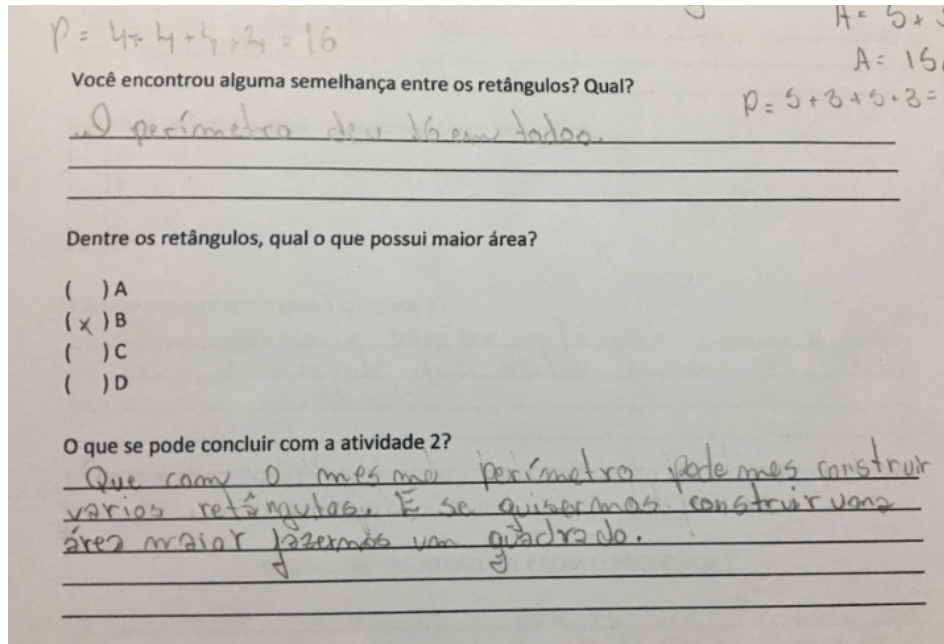 A = 5 x
P = 4+4+4+4 = 16
A = 15
Você encontrou alguma semelhança entre os retângulos? Qual?
P = 5+3+5+3 =
O perímetro deu 16 em todos.
Dentre os retângulos, qual o que possui maior área?
( ) A
(x) B
( ) C
( ) D
O que se pode concluir com a atividade 2?
Que com o mesmo perímetro pode mos construir
varios retângulos. E se quisermos construir uma
área maior fazermos um quadrado.